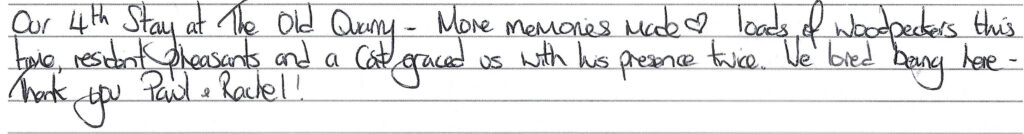 Our 4th Stay at The Old Quarry - More memories made ♡ loads of woodpeckers this
time, resident pheasants and a Cat graced us with his presence twice. We loved being here -
Thank you Paul & Rachel!